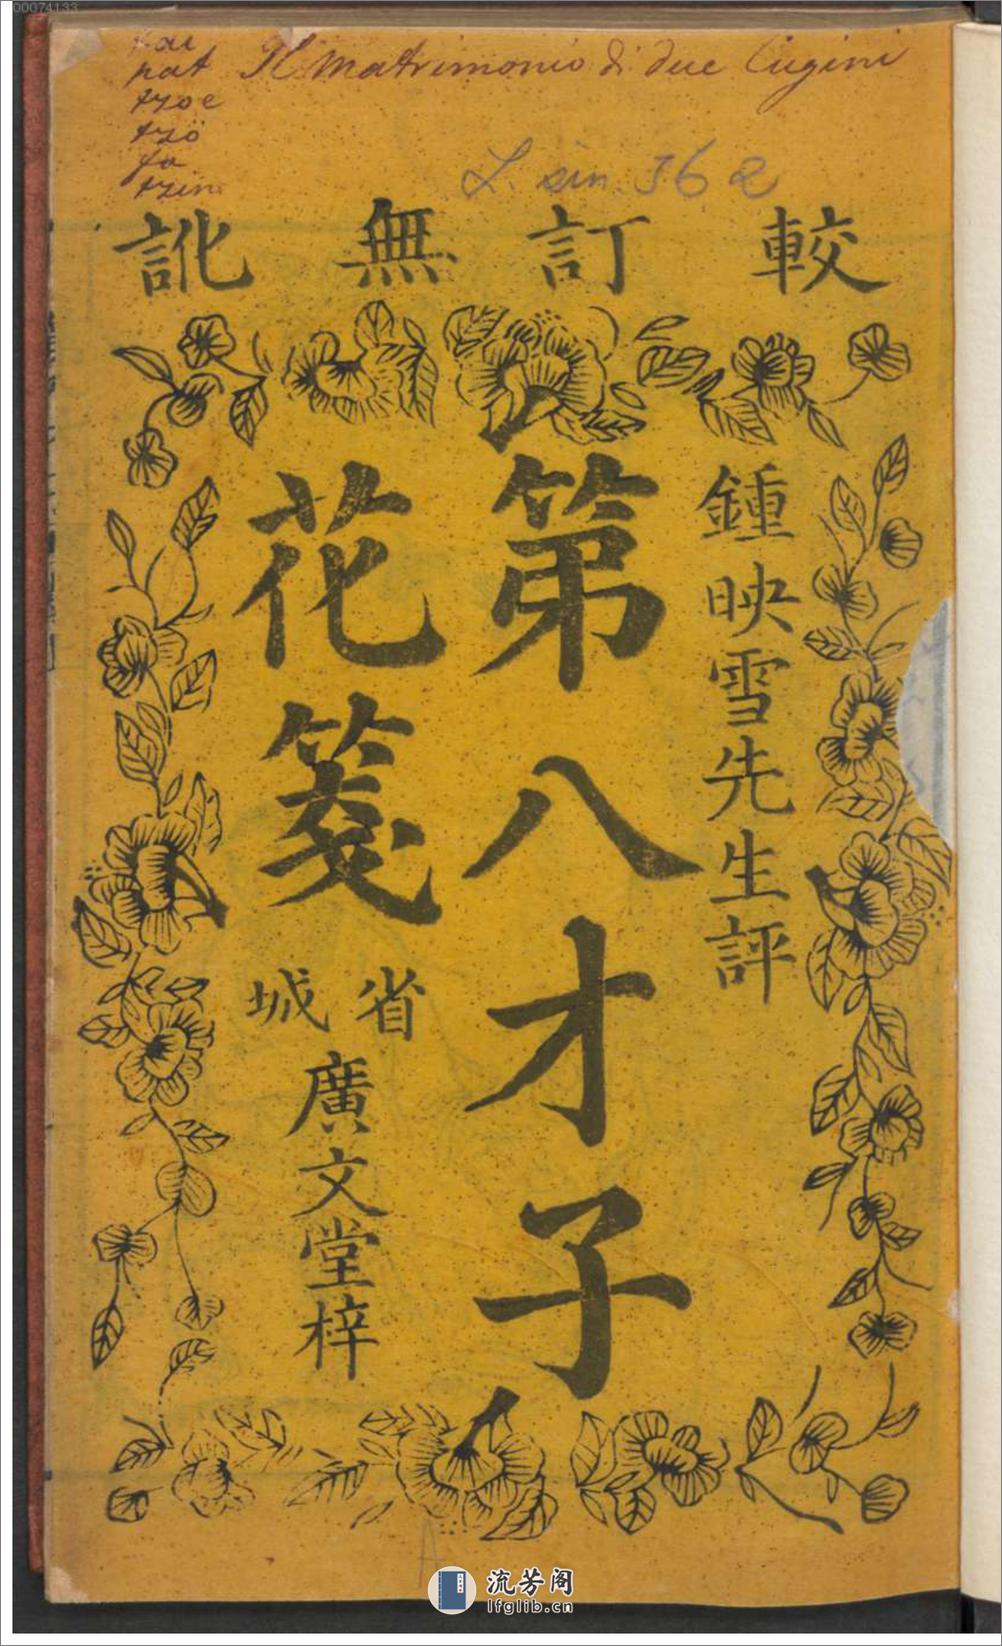 00074133
tai
pat
tzoe
tzö
fa
tzin
Il matrimonio di due Cugini
L. sin. 362
較訂無訛
鍾映雪先生評
第八才子
花箋
省城
廣文堂梓
A
流芳阁
lfglib.cn